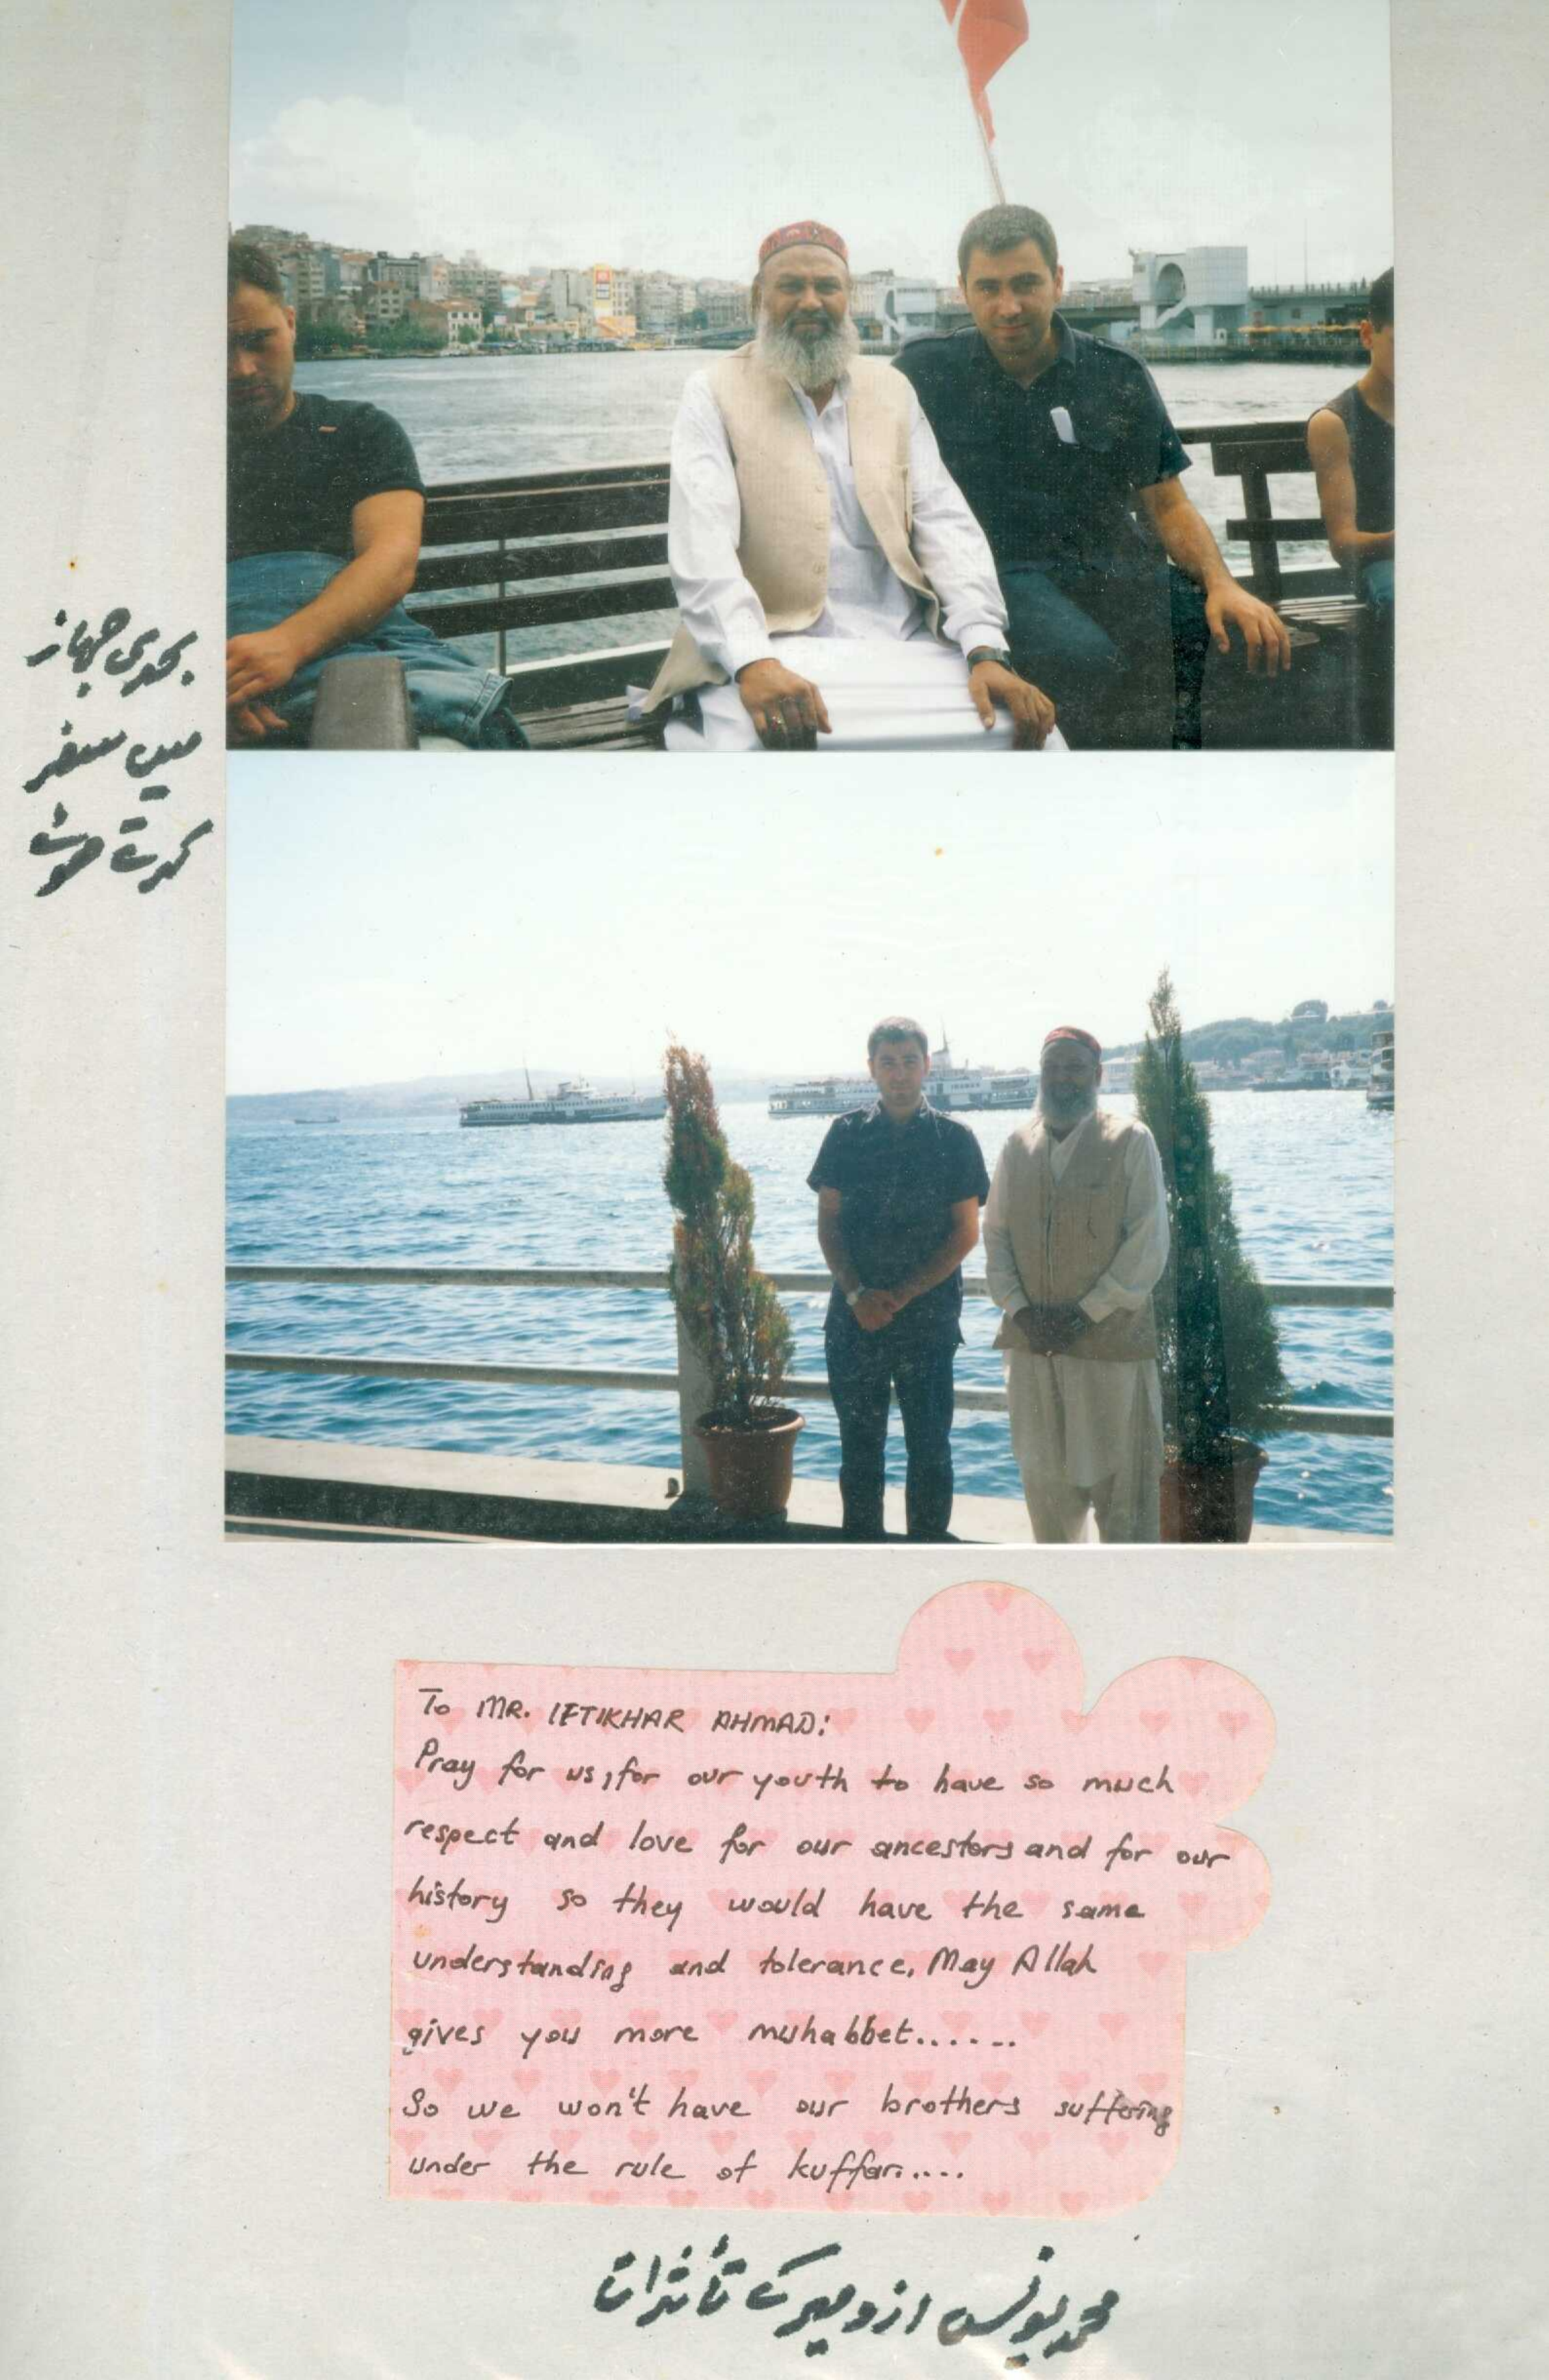 بحری جہاز
میں سفر
کرتے ہوئے
To MR. IFTIKHAR AHMAD:
Pray for us, for our youth to have so much
respect and love for our ancestors and for our
history so they would have the same
understanding and tolerance. May Allah
gives you more muhabbet......
So we won't have our brothers suffering
under the rule of kuffar.....
محمد یونس ازدمیر کے تأثرات